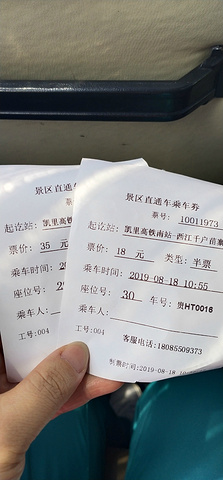 景区直通
起讫站: 凯里高铁
票价: 35 元
乘车时间: 20
座位号: 2
乘车人:
工号:004
景区直通车乘车券
票号: 10011973
起讫站: 凯里高铁南站-西江千户苗寨
票价: 18 元 类型: 半票
乘车时间: 2019-08-18 10:55
座位号: 30 车号: 贵HT0016
乘车人:
工号:004 客服电话:18085509373
制票时间:2019-08-18 10